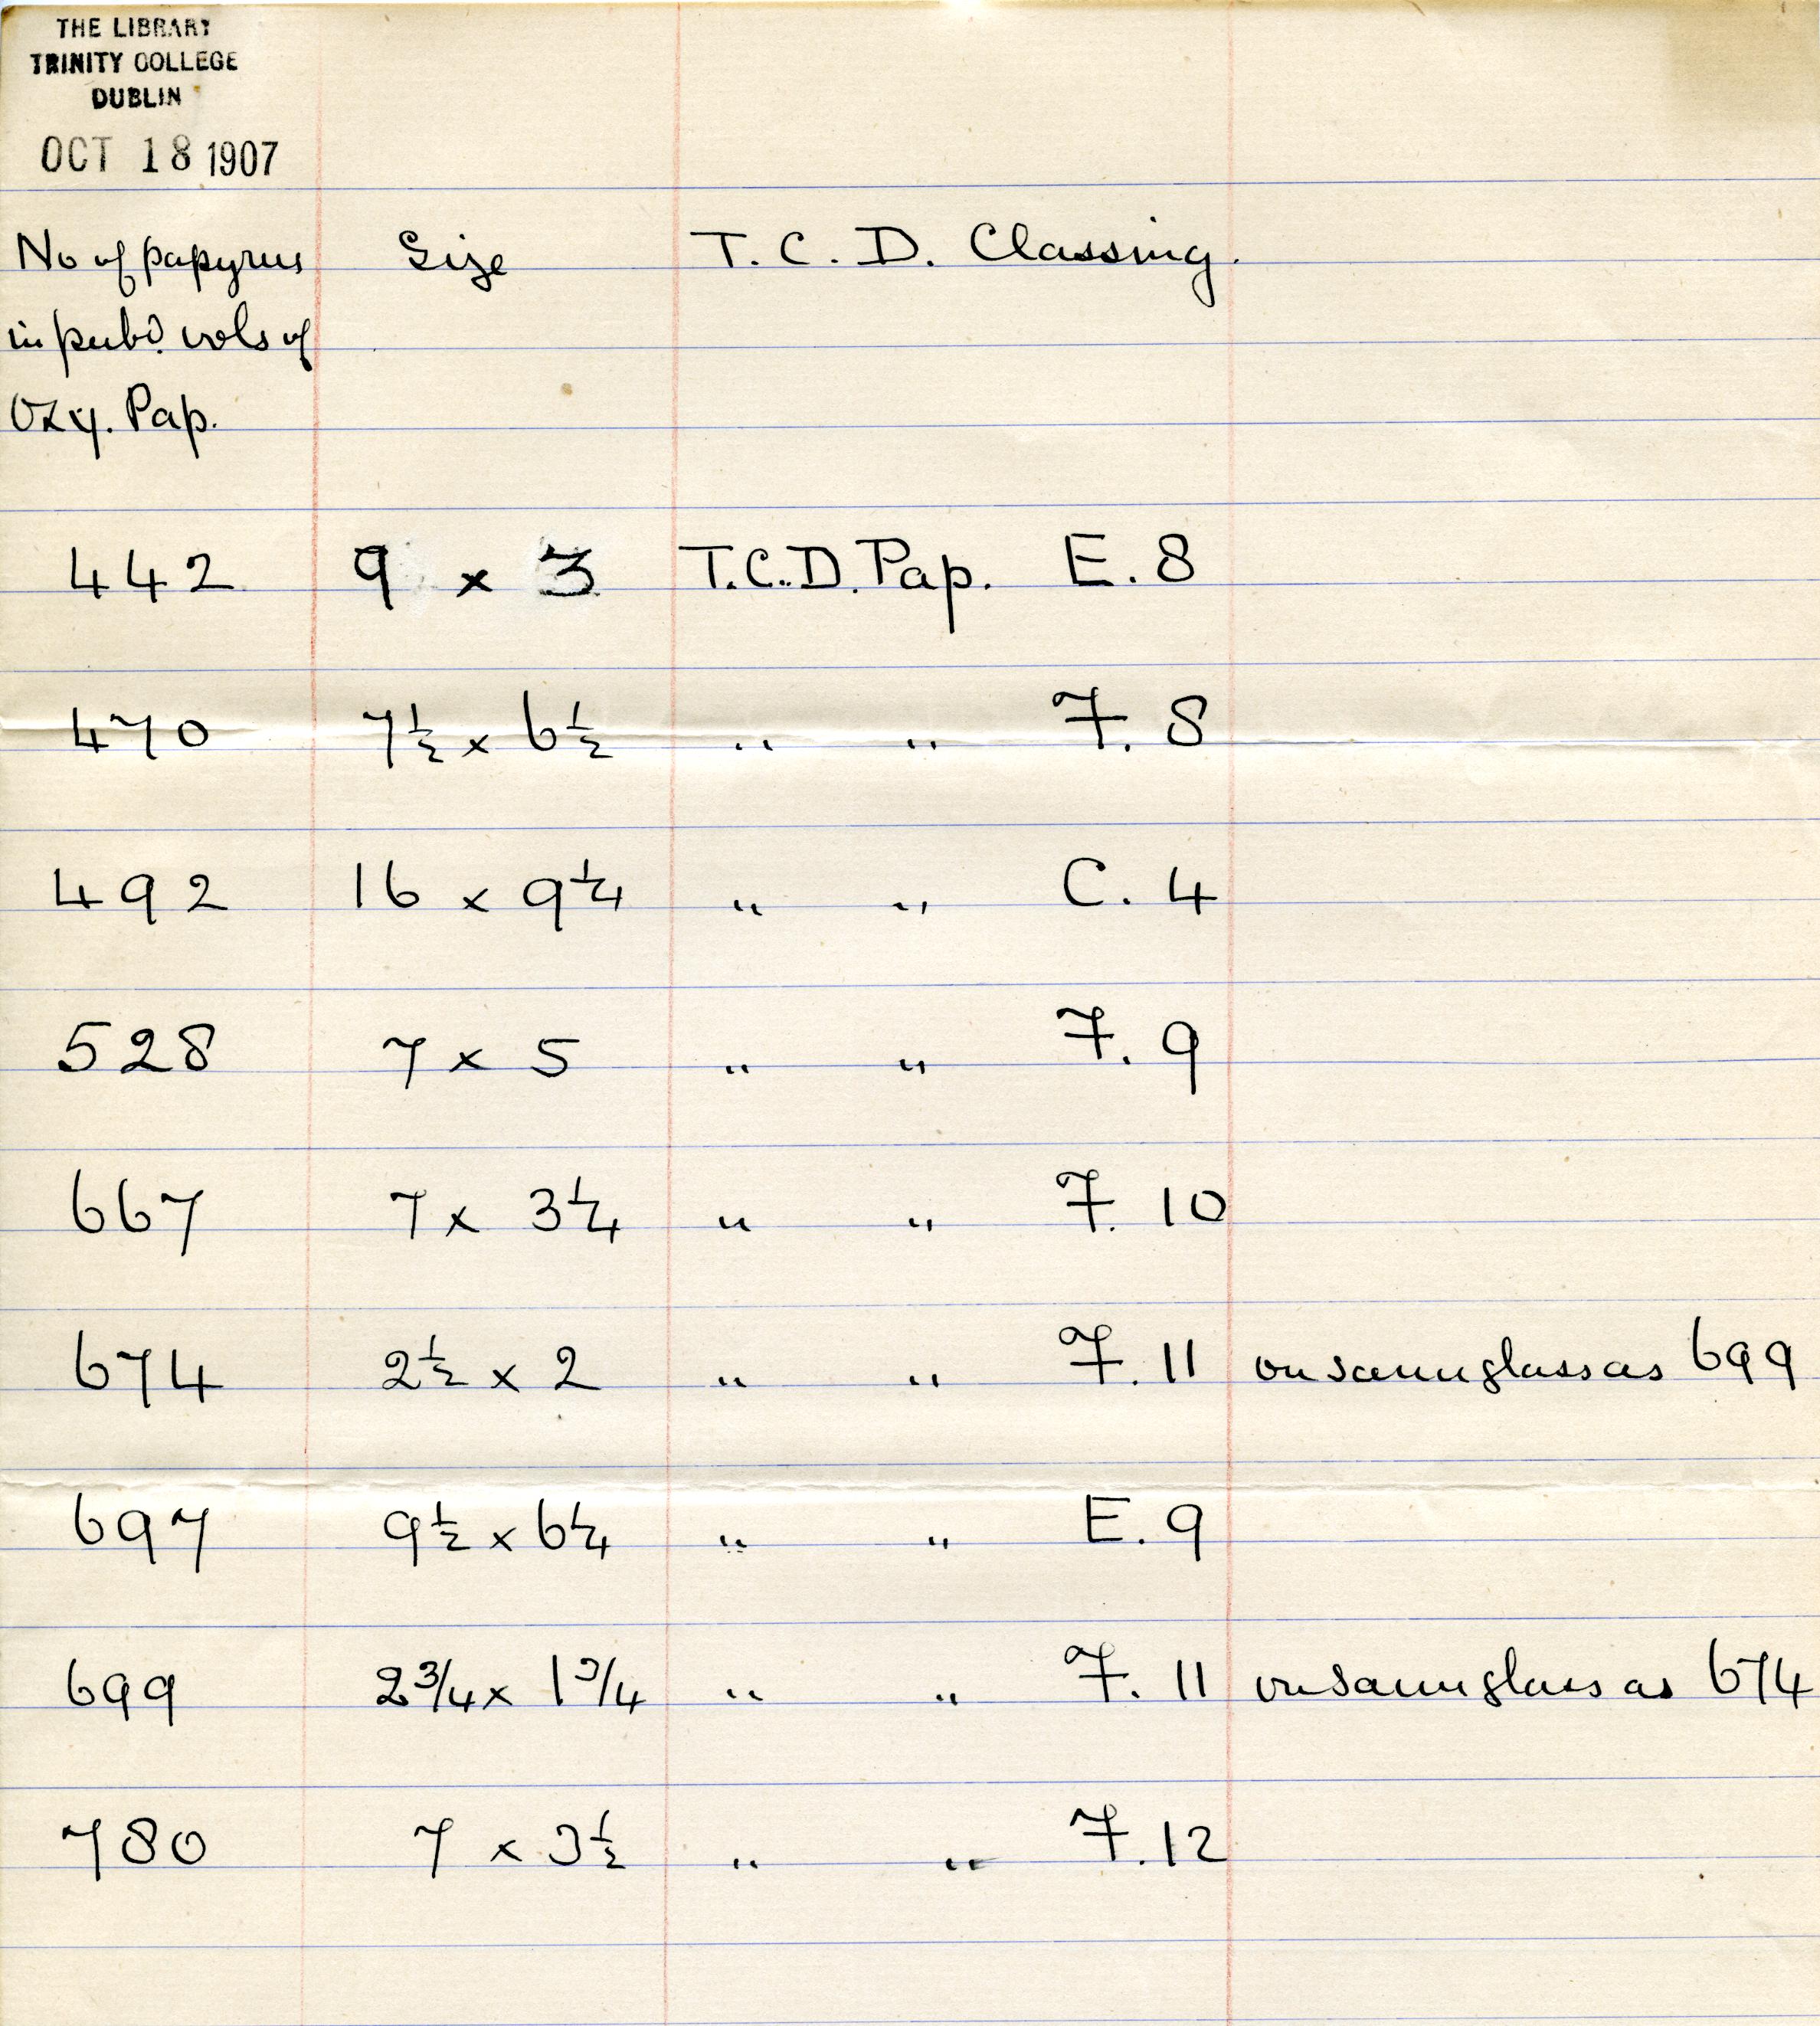 THE LIBRARY
TRINITY COLLEGE
DUBLIN
OCT 18 1907
No of papyrus Size T. C. D. Classing.
in pubd. vols of
Oxy. Pap.
442 9 x 3 T.C.D. Pap. E. 8
470 7½ x 6½ " " F. 8
492 16 x 9¼ " " C. 4
528 7 x 5 " " F. 9
667 7 x 3¼ " " F. 10
674 2½ x 2 " " F. 11 on same glass as 699
697 9½ x 6¼ " " E. 9
699 2¾ x 1¾ " " F. 11 on same glass as 674
780 7 x 3½ " " F. 12